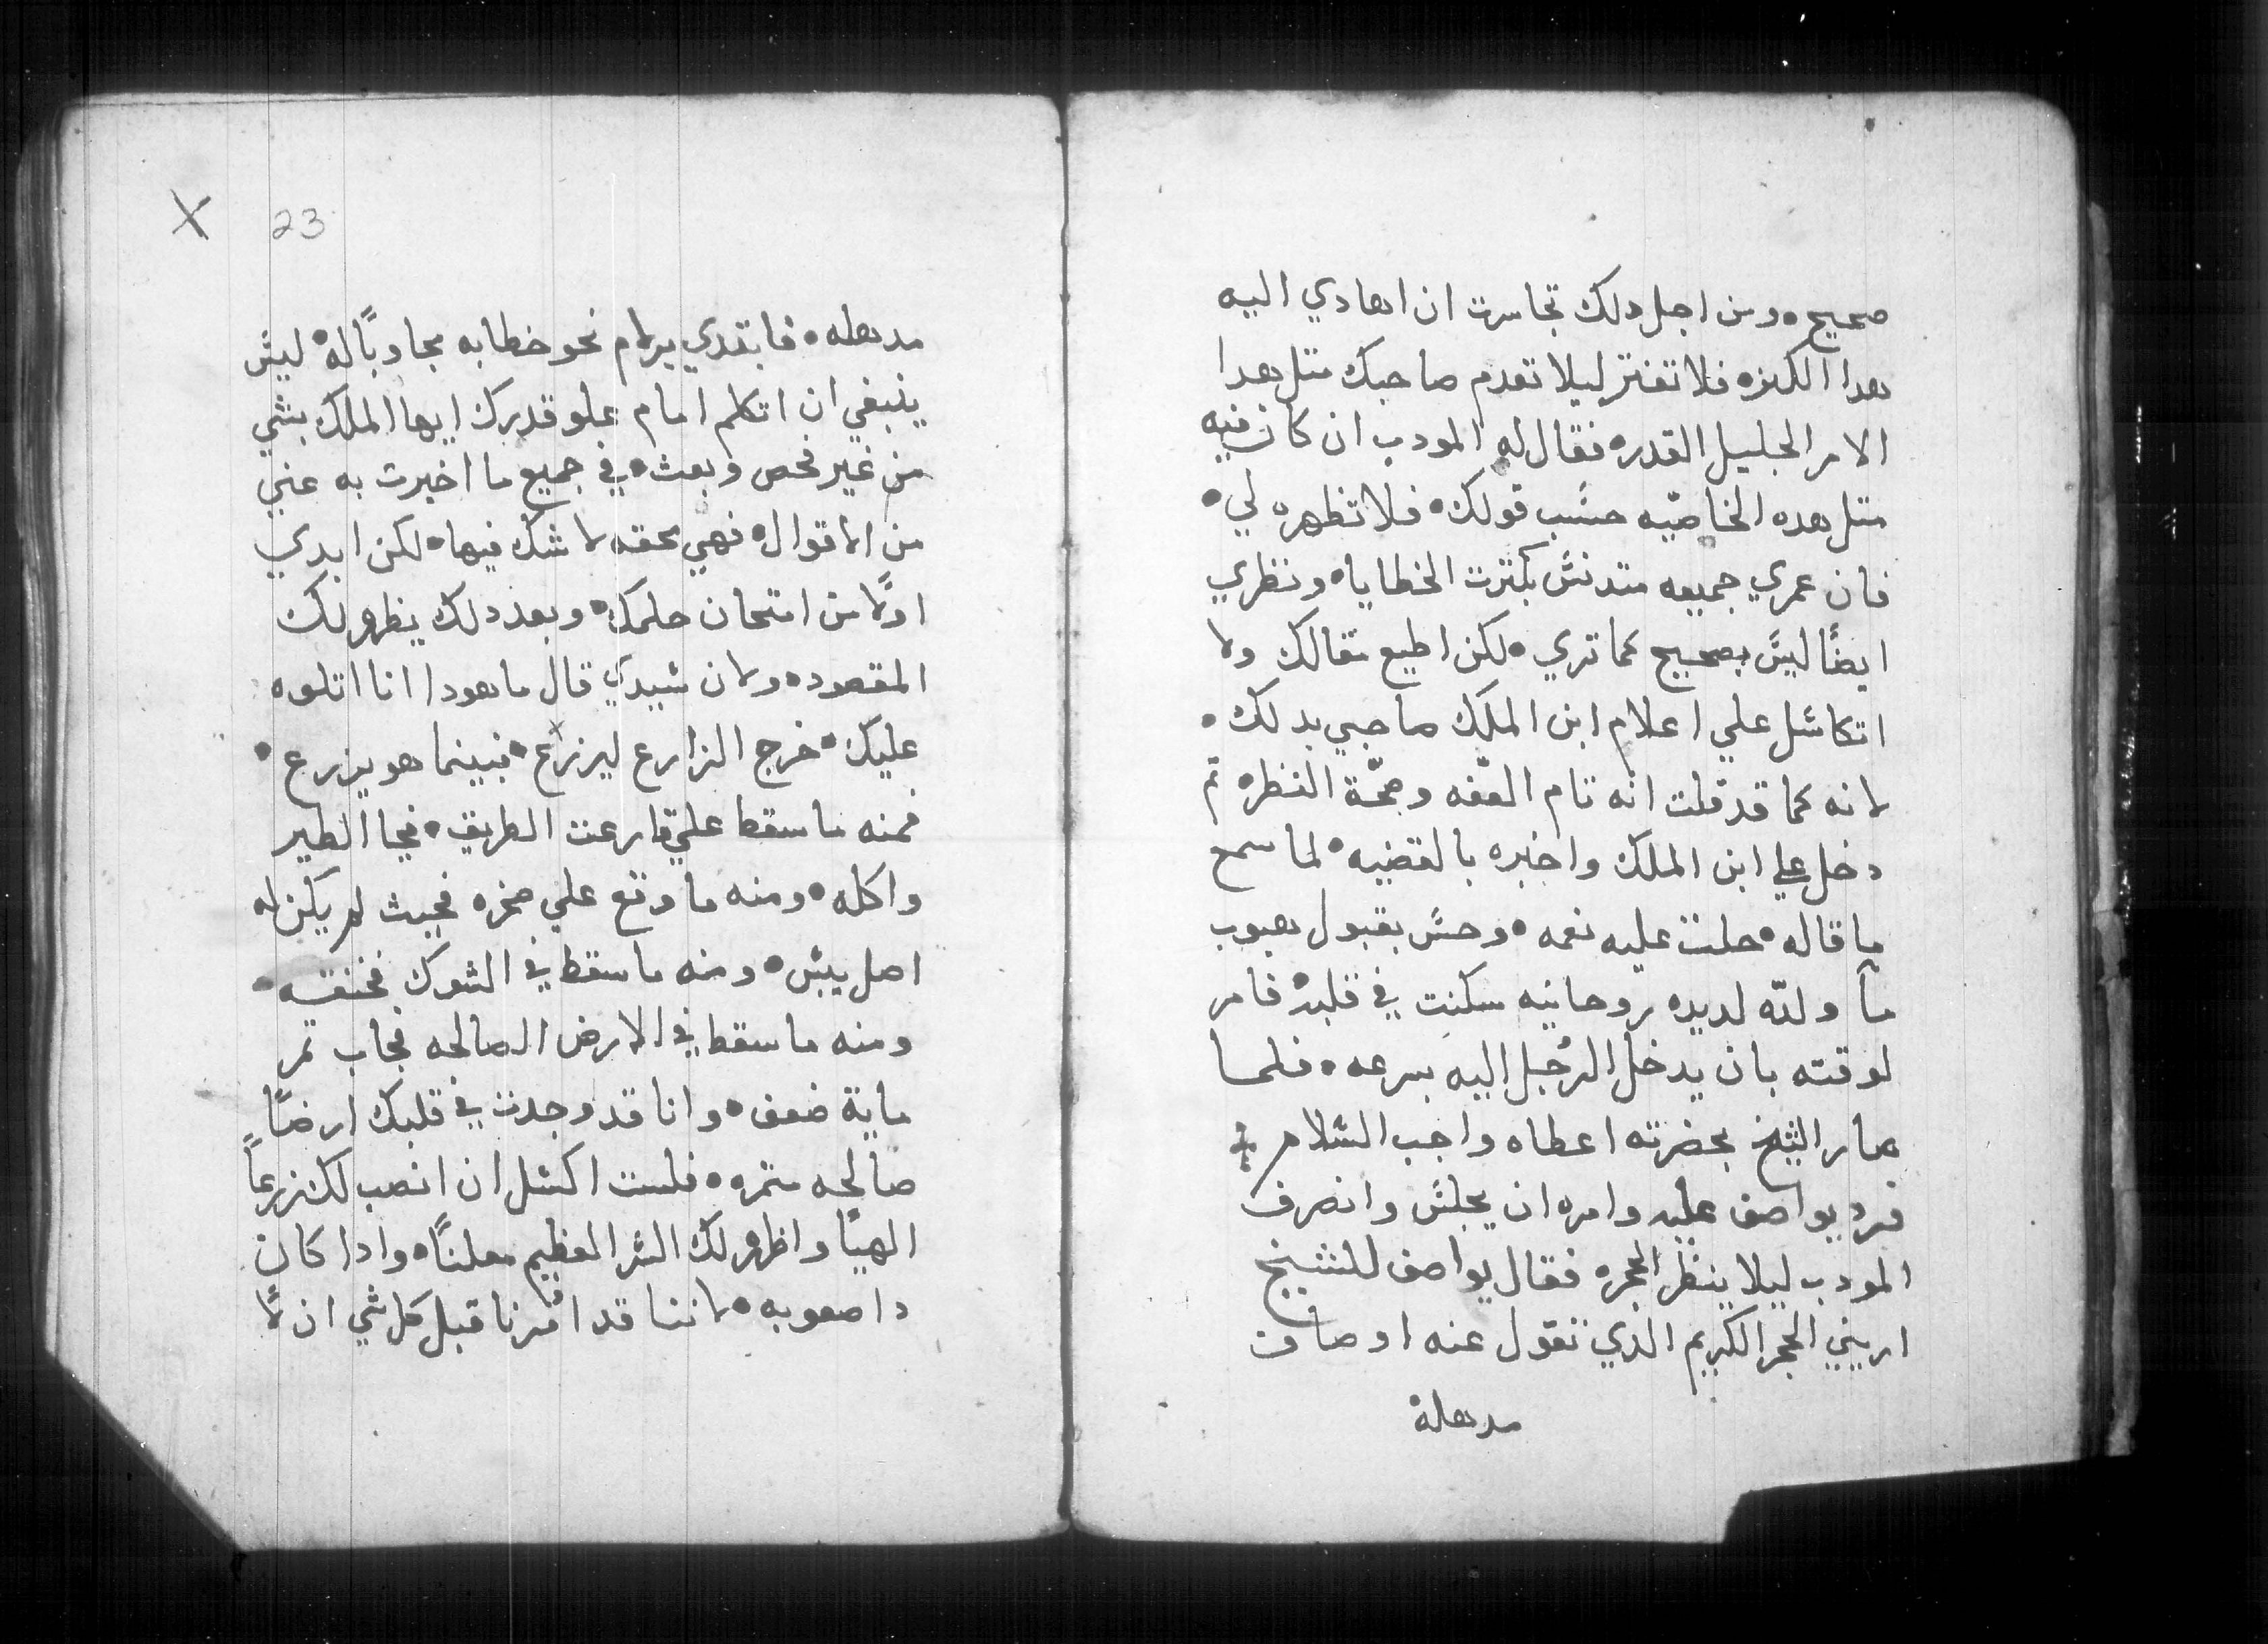 صحيح • ومن اجل دلك تجاسرت ان اهادي اليه
هدا الكنز • فلا تفتر ليلا تعدم صاحبك متل هدا
الامر الجليل القدر • فقال له المودب ان كان فيه
متل هده الخاصّيه حسَب قولك • فلا تظهره لي •
فان عمري جميعه متدنسٌ بكترت الخطايا • ونظري
ايضًا ليسَ بصحيح كما تري • لكن اطيع مقالك ولا
اتكاسَل علي اعلام ابن الملك صاحبي بدلك •
لانه كما قد قلت انّه تام العفّه وصحّة النظر • تم
دخل علي ابن الملك واخبره بالقضيه • لما سمع
ما قاله • حلت عليه نعمه • وحسَ بقبول هبوب
ما ولدّه لديده روحانيه سكنت في قلبه • فامر
لوقته بان يدخل الرجل اليه بسرعه • فلما
صار الشيخ بحضرته اعطاه واجب السَلام
فرد يواصف عليه وامره ان يجلسَ وانصرف
المودب ليلا ينظر الحجره فقال يواصف للشيخ
اريني الحجر الكريم الدي تقول عنه اوصاف
مدهلة
23 X
مدهله • فابتدي برلام نحو خطابه مجاوبًا له • ليسَ
ينبغي ان اتكلم امام علو قدرك ايها الملك بشي
من غير فحص وبعث • في جميع ما اخبرت به عني
من الاقوال • فهي محقه لا شك فيها • لكن ابدي
اولًا من امتحان حلمك • وبعد دلك يظهر لك
المقصود • ولان سَيدي قال ما هودا انا اتلوه
عليك • خرج الزارع ليزرع • فبينما هو يزرع •
فمنه ما سقط علي قارعت الطريق • فجا الطير
واكله • ومنه ما وقع علي صخره فحيث لم يكن له
اصل يبسَ • ومنه ما سقط في الشوك فخنقه •
ومنه ما سقط في الارض الصالحه فجاب تمر
ماية ضعف • وانا قد وجدت في قلبك ارضًا
صالحه متمره • فلست اكسَل ان انصب لك زرعًا
الهيًا واظهر لك السَر العظيم معلنًا • وادا كان
دا صعوبه • لاننا قد امرنا قبل كل شي ان لا